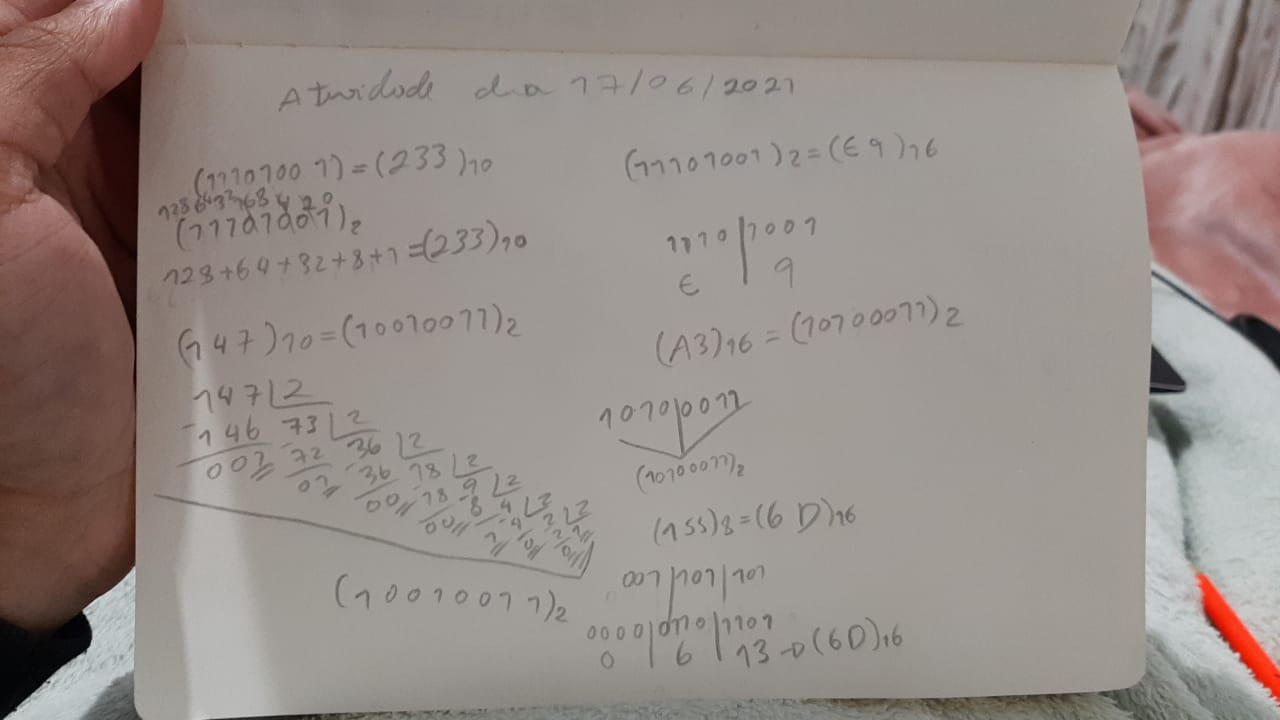 Atividade dia 17/06/2021
(11101001)=(233)10
128 64 32 16 8 4 2 0
(11101001)2
128+64+32+8+1=(233)10
(147)10=(10010011)2
147 2
-146 73 2
001 -72 36 2
01 -36 18 2
00 -18 9 2
00 -8 4 2
1 -4 2 2
0 -2 1
0
(10010011)2
(11101001)2=(E9)16
1110|1001
E 9
(A3)16=(10100011)2
1010|0011
(10100011)2
(155)8=(6D)16
001|101|101
0000|0110|1101
0 | 6 | 13-D(6D)16